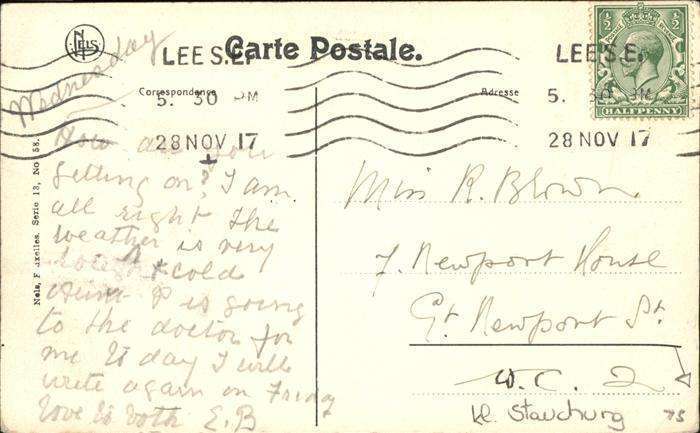 NELS
Carte Postale.
Correspondance
Adresse
LEE S.E.
5. 30 PM
28 NOV 17
LEE S.E.
5. 30 PM
28 NOV 17
1/2 1/2
HALFPENNY
Nels, Bruxelles. Serie 13, No 58.
Wednesday
How are you
getting on? I am
all right the
weather is very
& cold
P is going
to the doctor for
me to day I will
write again on Friday
love to both E.B
Miss R. Blown
7. Newport House
Gt. Newport St.
W.C. 2
75